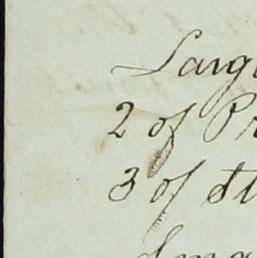 Larg
2 of Pr
3 of St